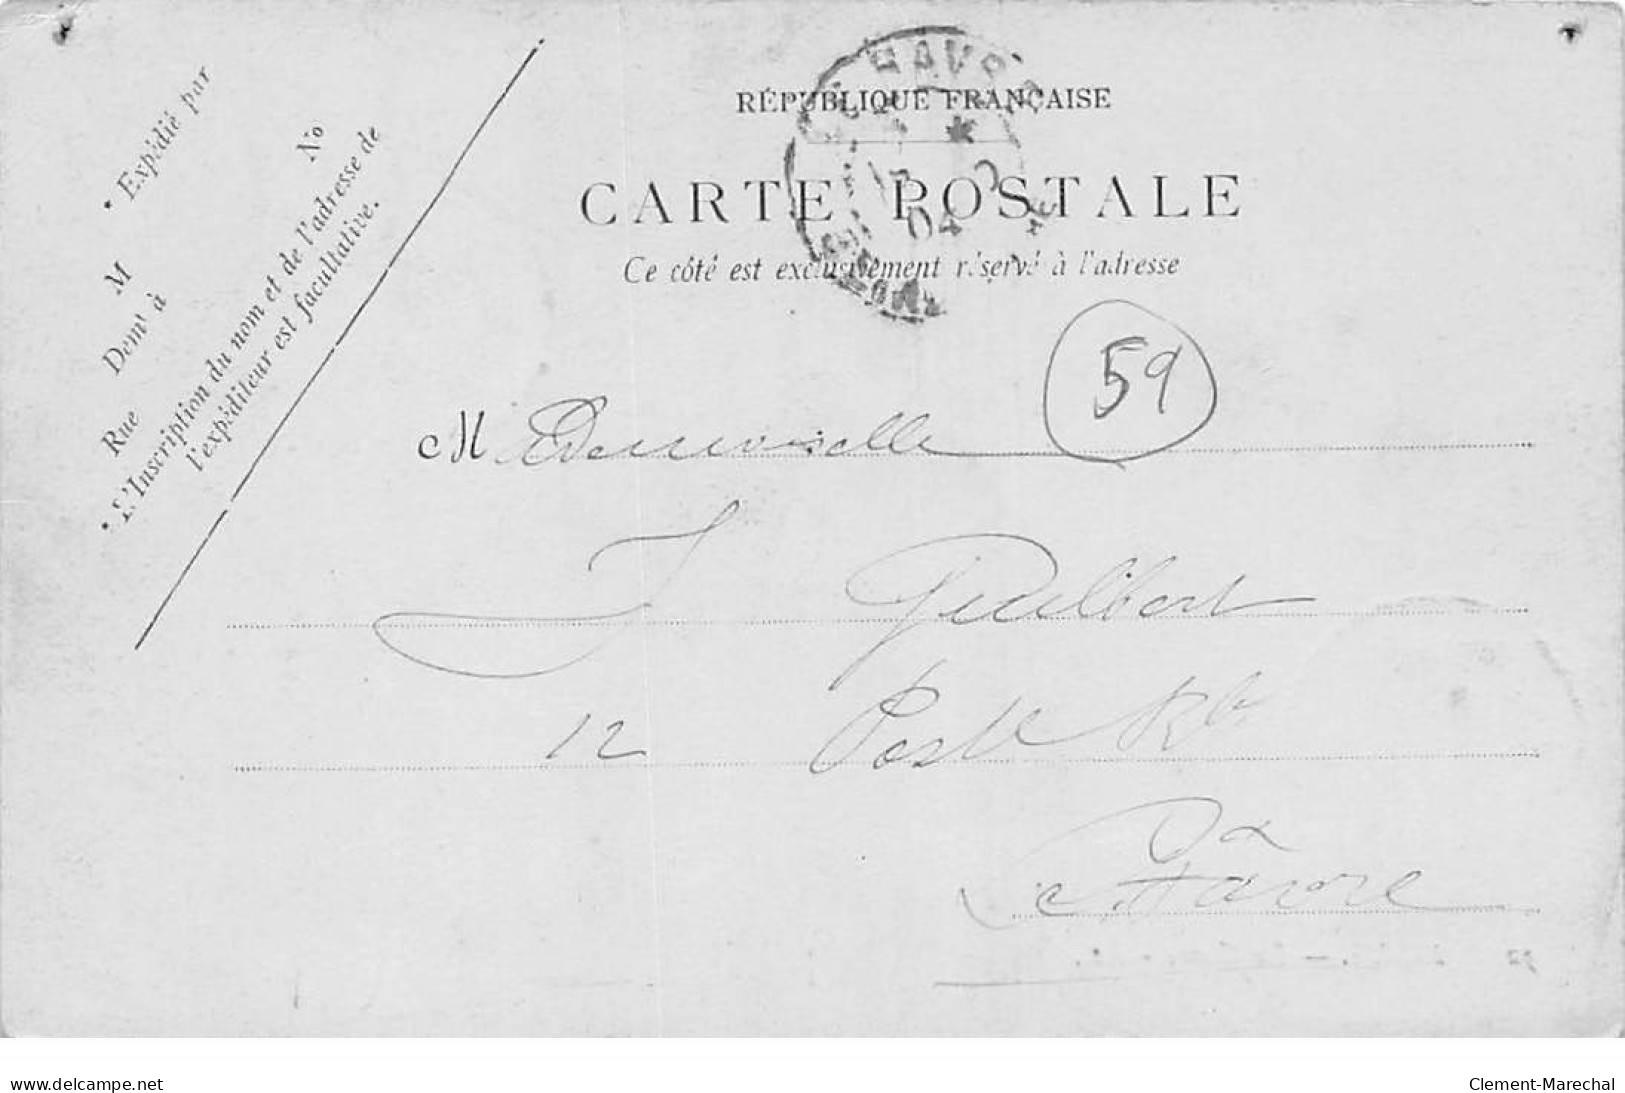 • Expédié par
M
Demt à
Rue
No
• L'Inscription du nom et de l'adresse de
l'expéditeur est facultative.
HAVRE
04
RÉPUBLIQUE FRANÇAISE
CARTE POSTALE
Ce côté est exclusivement réservé à l'adresse
59
M Demoiselle
J Guilbert
12 Poste Rte
Le Hâvre
www.delcampe.net
Clement-Marechal